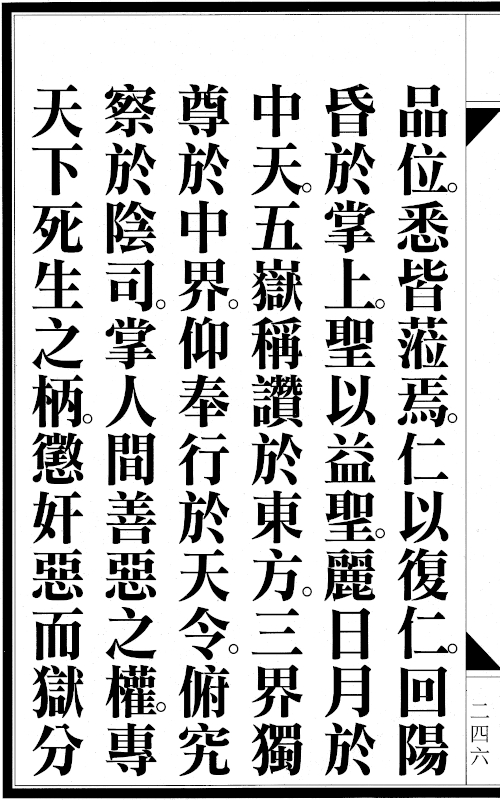 品位。悉皆蒞焉。仁以復仁。回陽
昏於掌上。聖以益聖。麗日月於
中天。五嶽稱讚於東方。三界獨
尊於中界。仰奉行於天令。俯究
察於陰司。掌人間善惡之權。專
天下死生之柄。懲奸惡而獄分
二四六